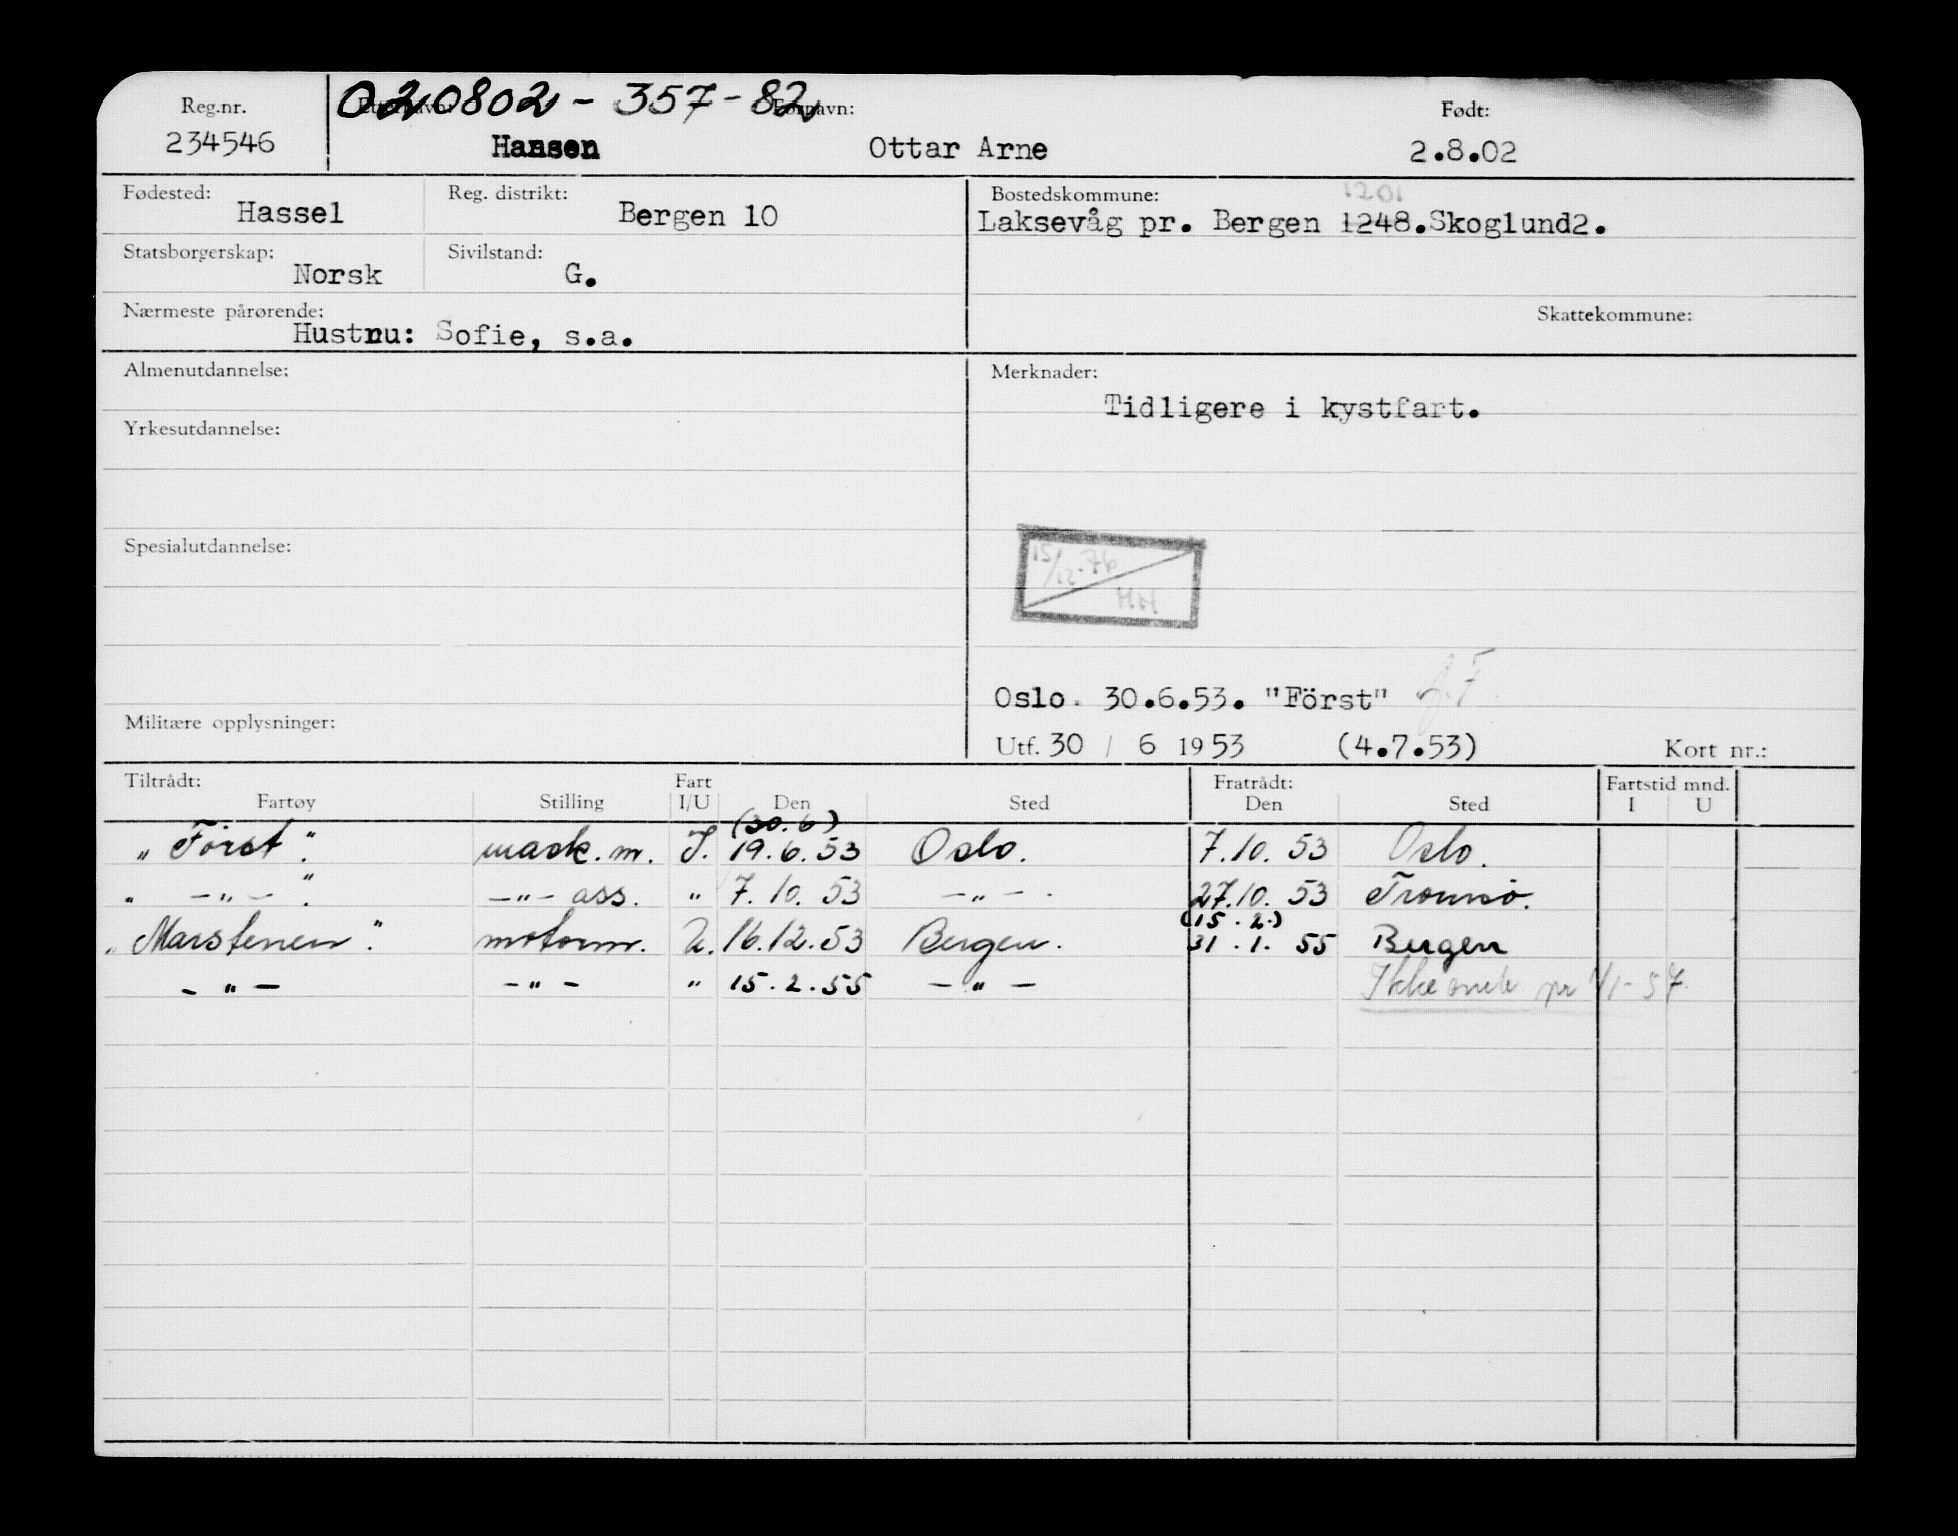 020802 - 357 - 82
Reg.nr. Etternavn: Fornavn: Født:
234546 Hansen Ottar Arne 2.8.02
Fødested: Reg. distrikt: Bostedskommune: 1201
Hassel Bergen 10 Laksevåg pr. Bergen 1248.Skoglund2.
Statsborgerskap: Sivilstand:
Norsk G.
Nærmeste pårørende: Skattekommune:
Hustru: Sofie, s.a.
Almenutdannelse: Merknader:
Tidligere i kystfart.
Yrkesutdannelse:
Spesialutdannelse:
15/12.76
HH
Oslo. 30.6.53. "Först"
Militære opplysninger:
Utf. 30 / 6 1953 (4.7.53) Kort nr.:
Tiltrådt: Fart Fratrådt: Fartstid mnd.
Fartøy Stilling I/U Den Sted Den Sted I U
(30.6)
"Först". mask.m. I. 19.6.53 Oslo. 7.10.53 Oslo.
" -"- ". -"- ass. " 7.10.53 -"- . 27.10.53 Tromsö.
(15.2.)
"Marstenen". motorm. U. 16.12.53 Bergen. 31.1.55 Bergen
-"- -"- " 15.2.55 -"-
Ikke pr 1/1-57